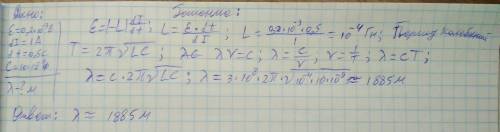 Дано:
Решение:
ε=0,2·10⁻³В
ΔI=1А
Δt=0,5с
C=10·10⁻⁹Ф
λ-?м
ε=|-L| ΔI/Δt ; L = ε·Δt/ΔI ; L = 0,2·10⁻³·0,5 = 10⁻⁴ Гн; Период колебаний
T=2π√LC ; λ ν=c ; λ = c/ν , ν = 1/T , λ = cT ;
λ = c · 2π√LC ; λ = 3·10⁸·2π√10⁻⁴·10·10⁻⁹ ≈ 1885 м
Ответ: λ ≈ 1885 м